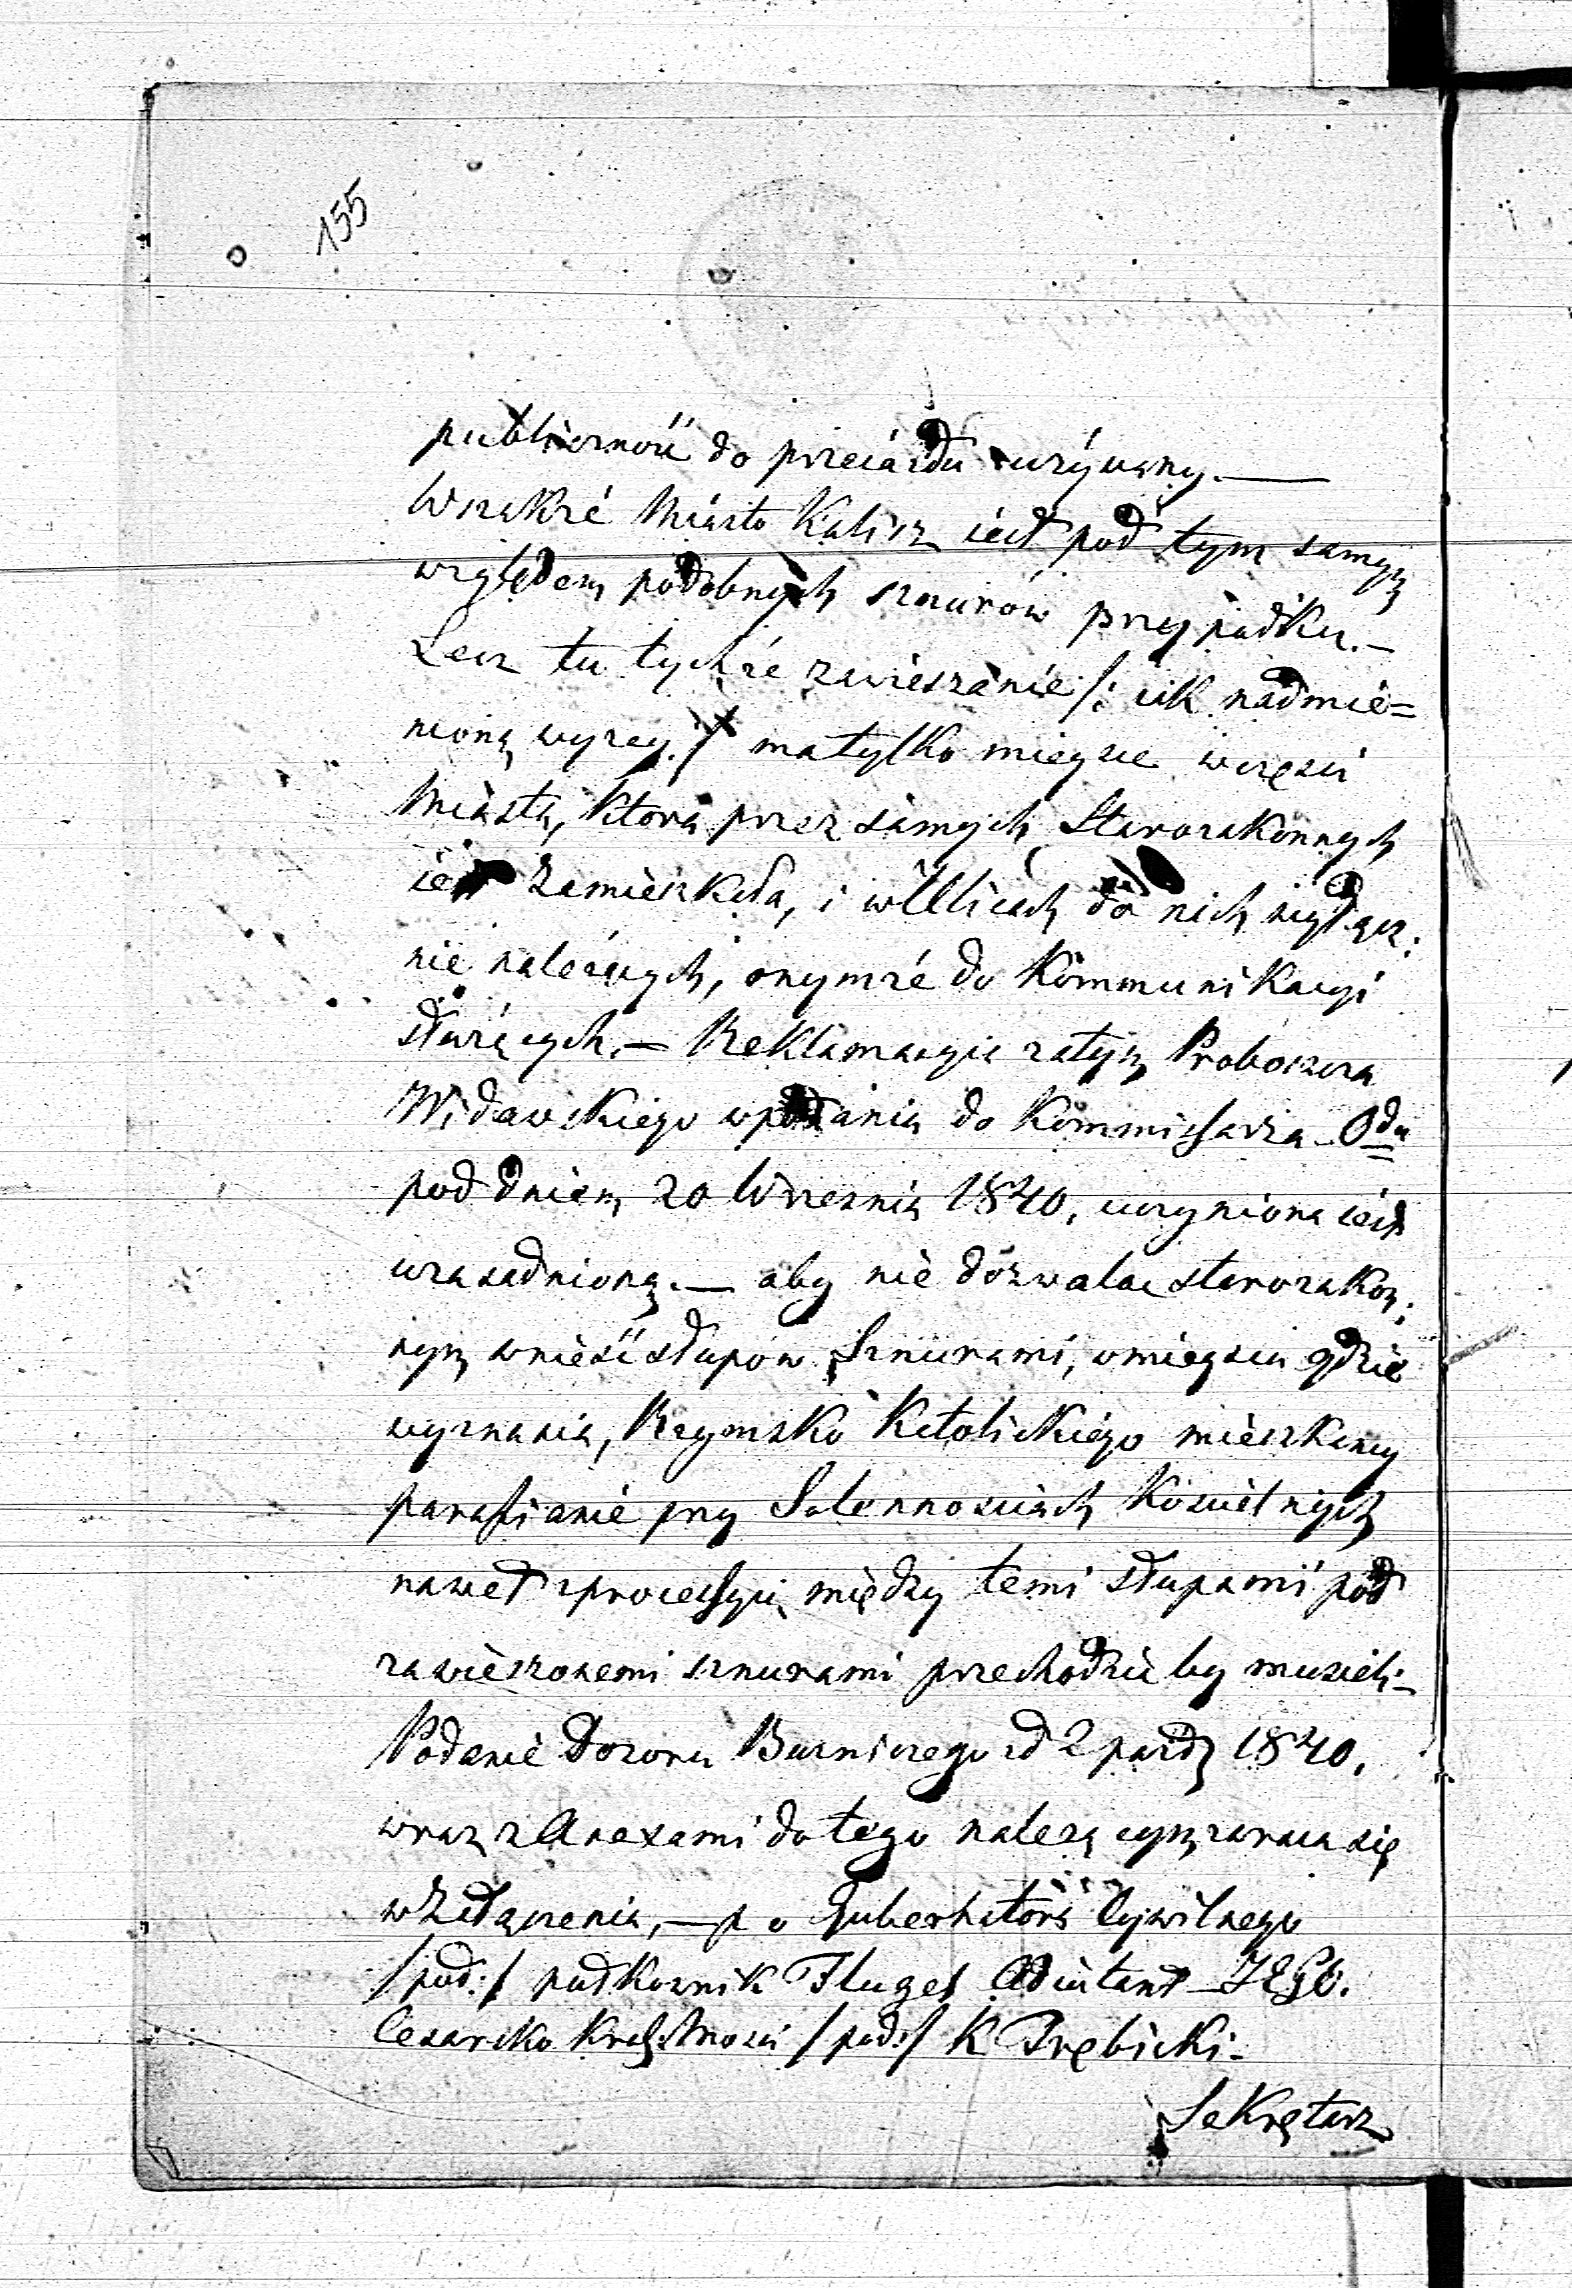 155
publicznośc do przeiázdu uzýwany.—
Wszakzé Miásto Kalisz iest pod tym samym
względem podobnych sznurów przypadku.—
Lecz tu tychże zawieszánie /: iak nadmie=
nioną wyzey./ ma tylko mieysce w częsci
Miásta, która przez samych Starozakonnych
iest Zamieszkała, i w Ulicach do nich wyłącz:
nie należących, onymzé do Kommunikacyi
służących.— Reklamacyia zatym Proboszcza
Widawskiego w podania do Kommissarza Odu
pod dniem 20 Wrzesnia 1840, uczyniona iest
uzasadnioną.— aby nie dozwalac starozakon:
nym wnieść słupów Sznurami, w mieyscu gdzie
wyznania, Rzymsko Katolickiego mieszkancy
parafianie przy Solennosciach Kościelnych
nawet z processyią między temi słupami pod
zawieszonemi sznurami przechodzić by musieli.—
Podanie Dozoru Bużniczego z d 2 pazdz 1840.
wraz z Anexami do tego należącym zwraca się
w Załączeniu,— p o Gubernatora Cywilnego
/pod:/ pułkownik Flugel Adiutant JEGO.
Cesarsko Krol: Mosci /pod:/ K Trębicki.
Sekretarz